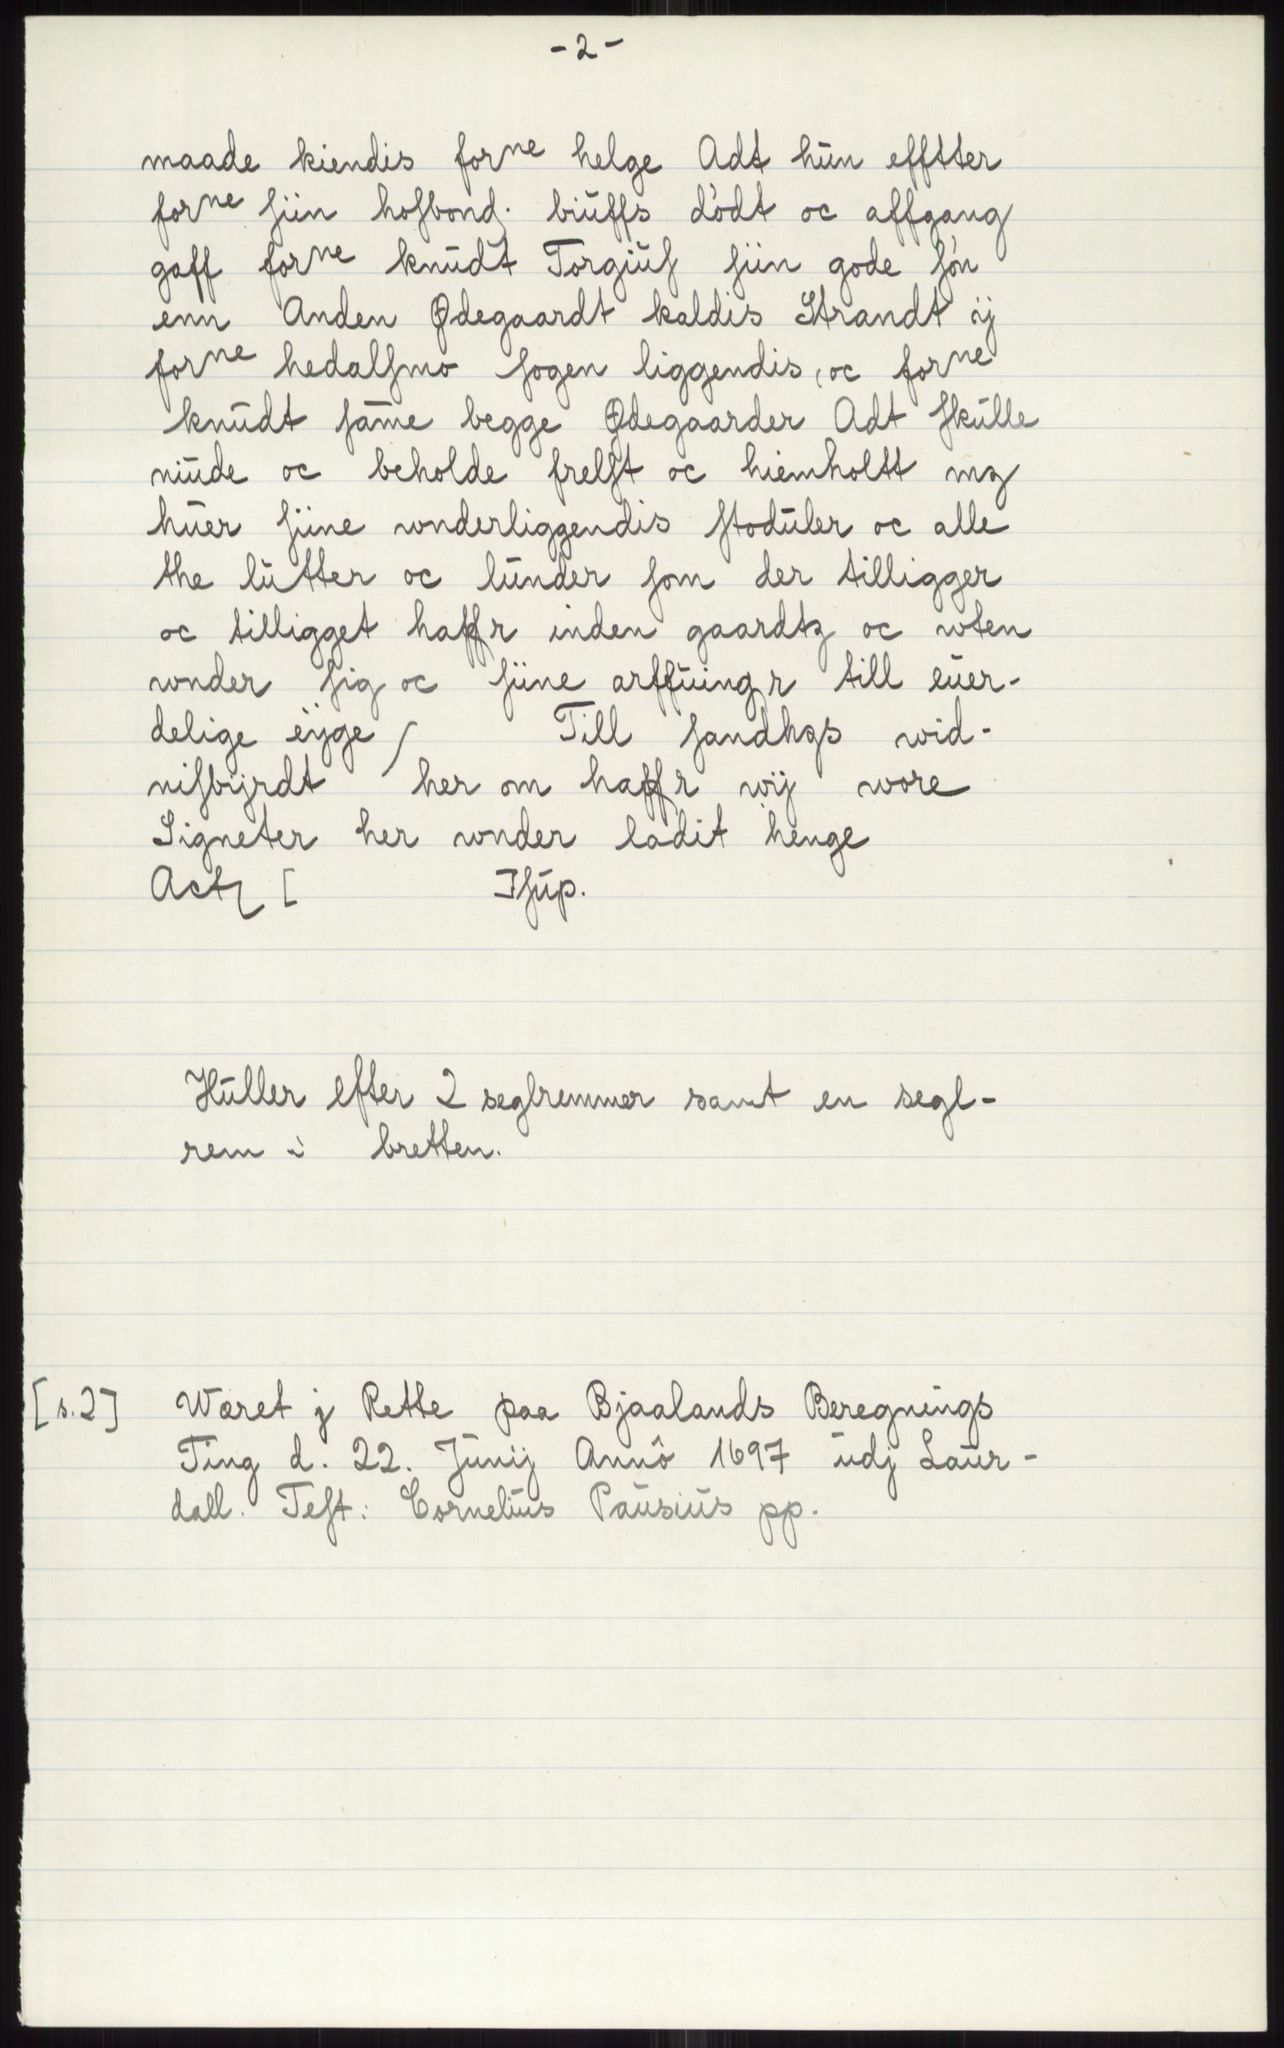 -2-
maade kiendis forne helge Adt hūn efftter
forne ſiin hoſbond. biūffs dödt oc affgang
gaff forne knūdt Torgiūſ ſiin gode ſön
enn Anden Ødegaardt kaldis Strandt ÿ
forne hedalſmo ſogen liggendis, oc forne
knūdt ſam̄e begge Ødegaarder Adt ſkūlle
niūde oc beholde frelſt oc hiemholtt mꝫ
hūer ſiine wnderliggendis ſtodūler oc alle
the lūtter oc lūnder ſom der tilligger
oc tilligget haffr inden gaardtꝫ oc wten
wnder ſig oc ſiine arffūingr till eūer-
delige eÿge / Till ſandhꝫs wid-
niſbÿrdt her om haffr wÿ wore
Signeter her wnder ladit henge
Actꝫ [ Iſūp.
Hūller efter 2 seglremmer samt en segl-
rem i bretten.
[s.2] Wæret j Rette paa Bjaalands Beregnings
Ting d. 22. Jūnij Annô 1697 ūdj Laūr-
dall. Teſt: Corneliūs Paūsiūs pp.